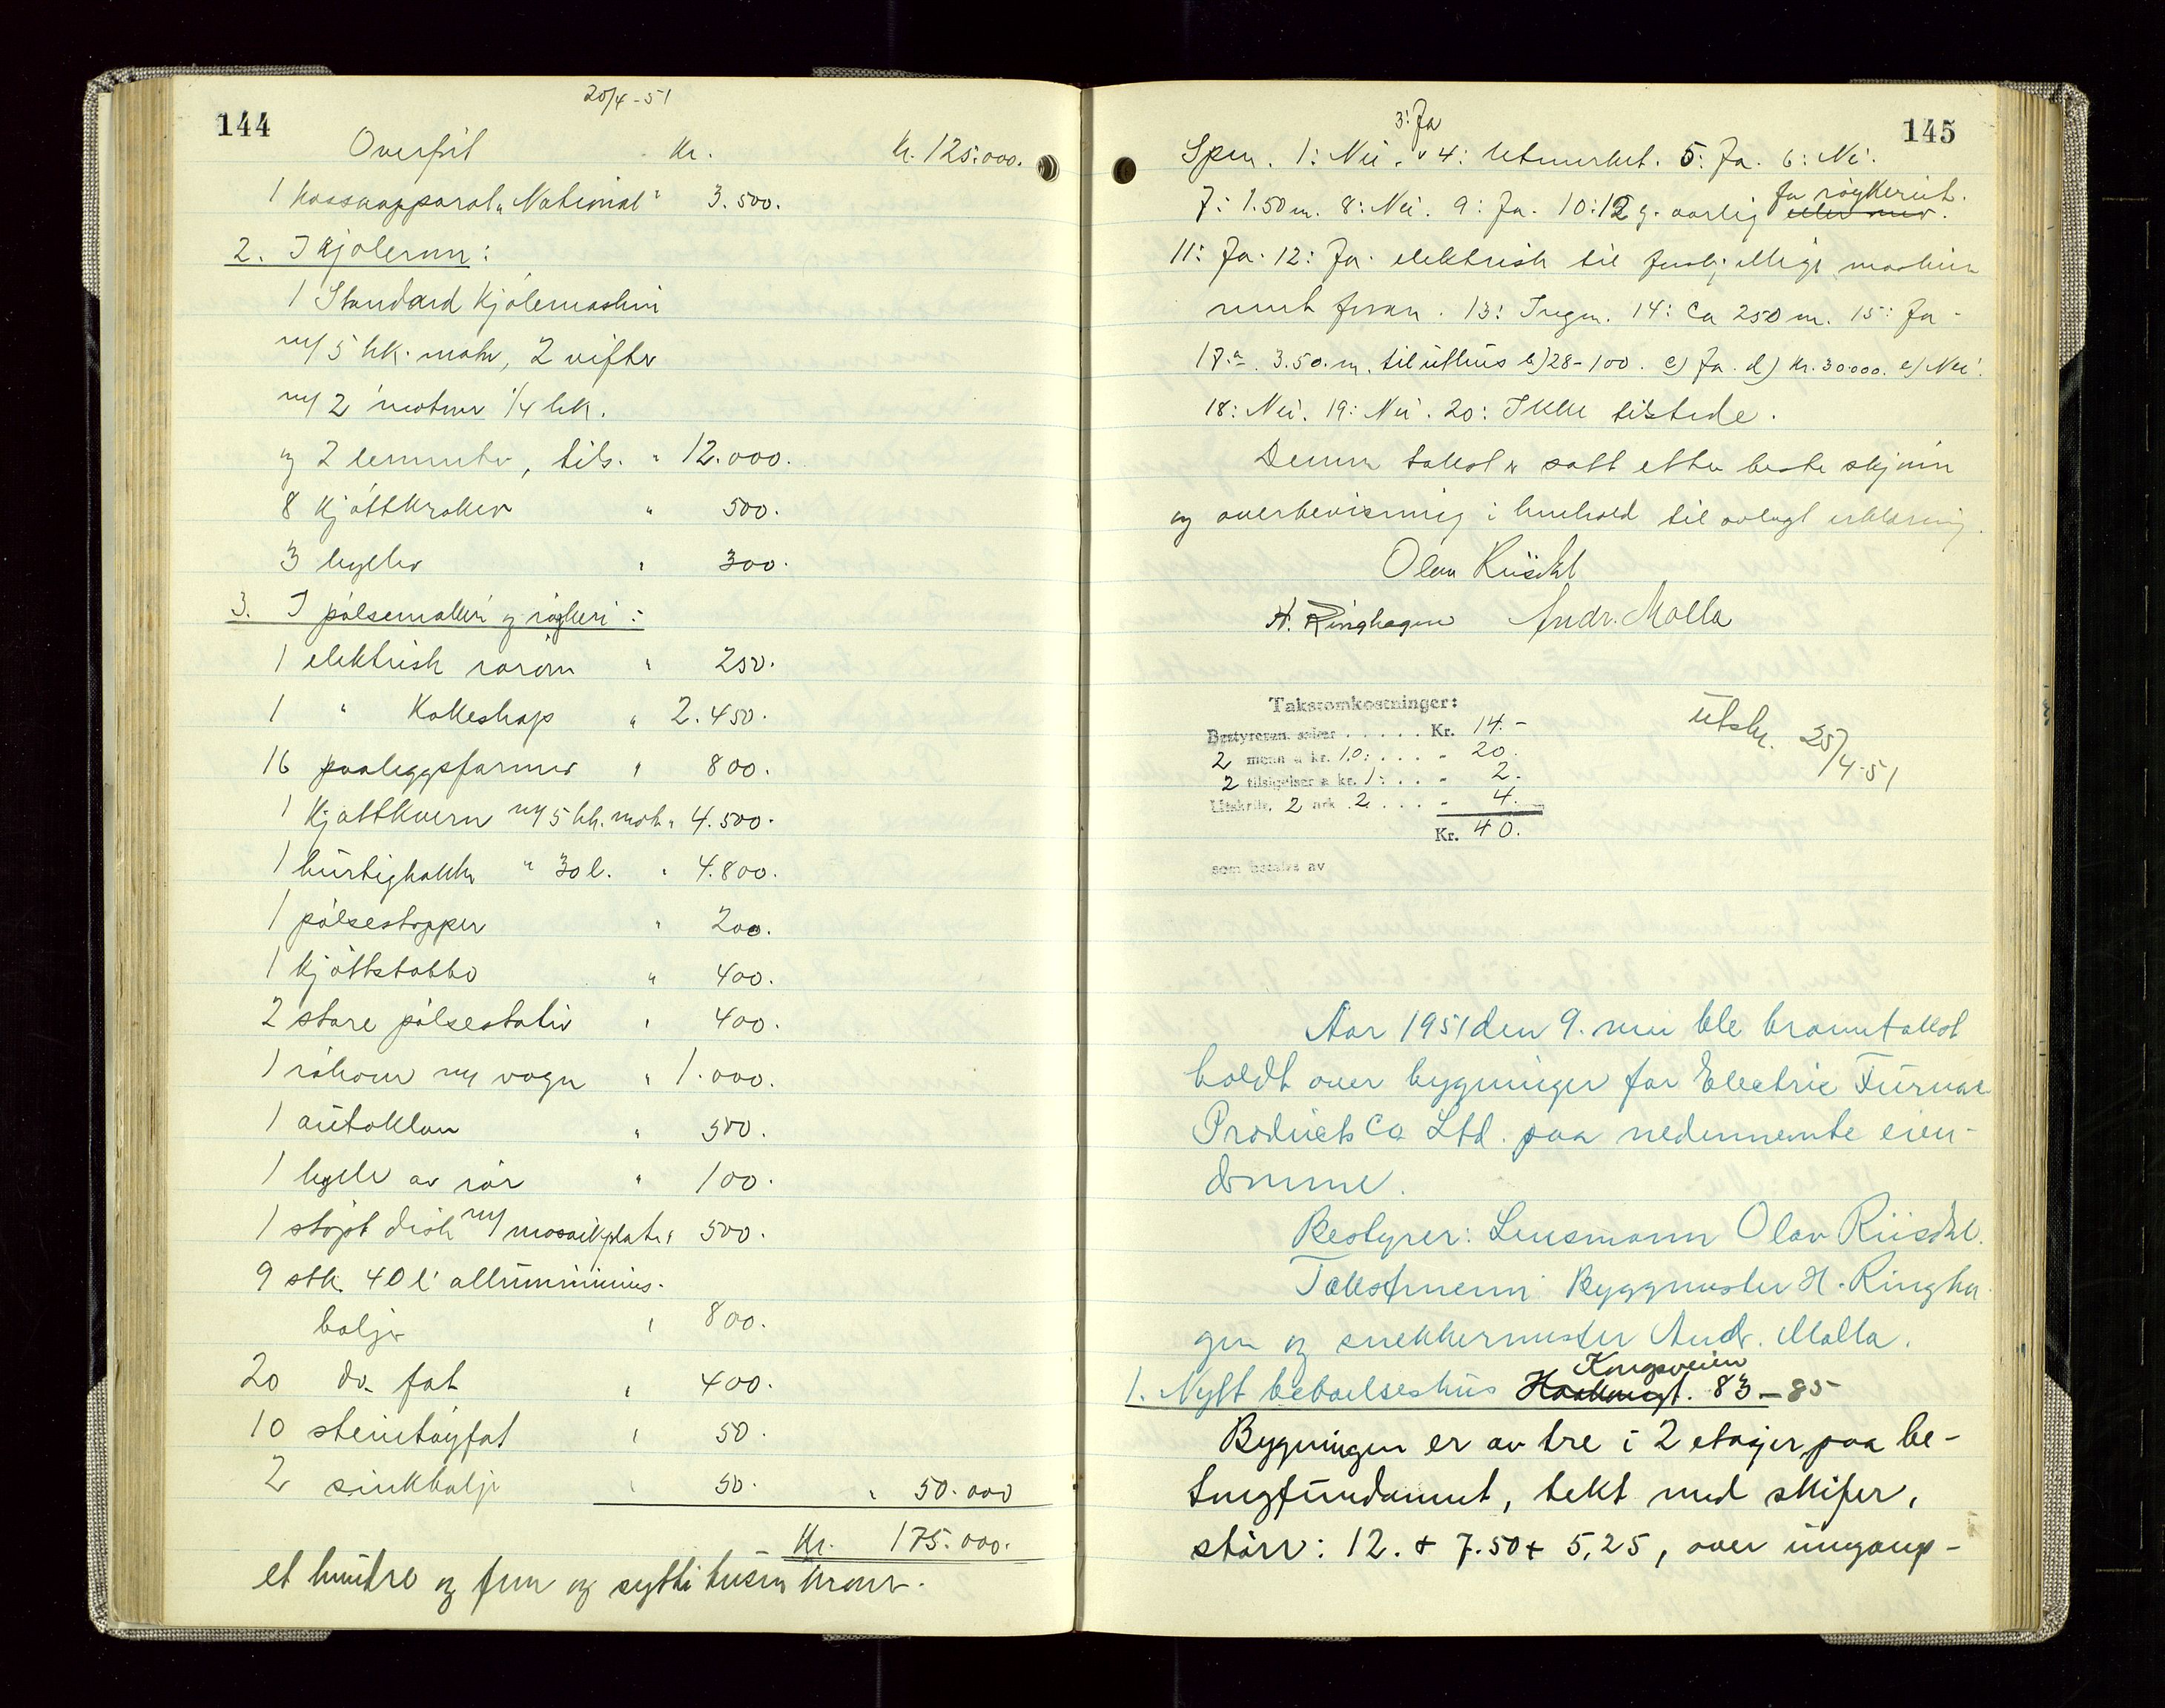 144
20/4-51
Overført Kr. Kr. 125.000.
1 kassaapparat „National" 3.500.
2. I kjølerum:
1 Standard kjølemaskin
m/5 hk. motor, 2 vifter
m/2 motorer 1/4 hk.
og 2 elementer, tils. " 12.000.
8 kjøttkroker " 500.
3 hyller " 300.
3. I pølsemakeri og røykeri:
1 elektrisk rørovn " 250.
1 " Kokeskap " 2.450.
16 paaleggsformer " 800.
1 Kjøttkvern m/5 hk. mot. " 4.500.
1 hurtighakker " 30 l. " 4.800.
1 pølsestopper " 200.
1 kjøttstabbe " 400.
2 store pølsestativ " 400.
1 røkovn m/ vogn " 1.000.
1 autoklav " 500.
1 hylle av rør " 100.
1 støpt disk m/mosaikplater " 500.
9 stk. 40 l alluminiums-
baljer " 800.
20 do. fat " 400.
10 steintøyfat " 50.
2 sinkbalje " 50. " 50.000
Kr. 175.000.
et hundre og fem og sytti tusen kroner.
145
3: Ja
Spm. 1: Nei. v 4: Utmerket. 5: Ja. 6: Nei.
7: 1.50 m. 8: Nei. 9: Ja. 10: 12 g. aarlig eller mer. fra røykeriet.
11: Ja. 12: Ja. elektrisk til forskjellige maskiner
nevnt foran. 13: Ingen. 14: Ca 250 m. 15: Ja.
17.a. 3.50. m. til uthus b) 28-100. c) Ja. d) Kr. 30.000. e) Nei.
18: Nei. 19: Nei. 20: Ikke tilstede.
Denne takst er satt etter beste skjønn
og overbevisning i henhold til avlagt erklæring.
Olav Riisdal
H. Ringhagen Andr. Molla
Takstomkostninger:
Bestyreren. saker ..... Kr. 14.-
2 menn a kr. 10: ... - 20.
2 tilsigelser a kr. 1: .. - 2.
Utskrift, 2 ark 2 .... - 4.
Kr. 40.
som betales av
Utskr. 25/4-51
Aar 1951 den 9. mai ble branntakst
holdt over bygninger for Electric Furnace
Products Co Ltd. paa nedennevnte eien-
domme.
Bestyrer: Lensmann Olav Riisdal.
Takstmenn: Byggmester H. Ringha-
gen og snekkermester Andr. Molla.
Kongsveien
1. Nytt beboelseshus Haakonsgt. 83-85
Bygningen er av tre i 2 etasjer paa be-
tongfundament, tekt med skifer,
størr: 12. + 7.50 + 5,25, over inngang-